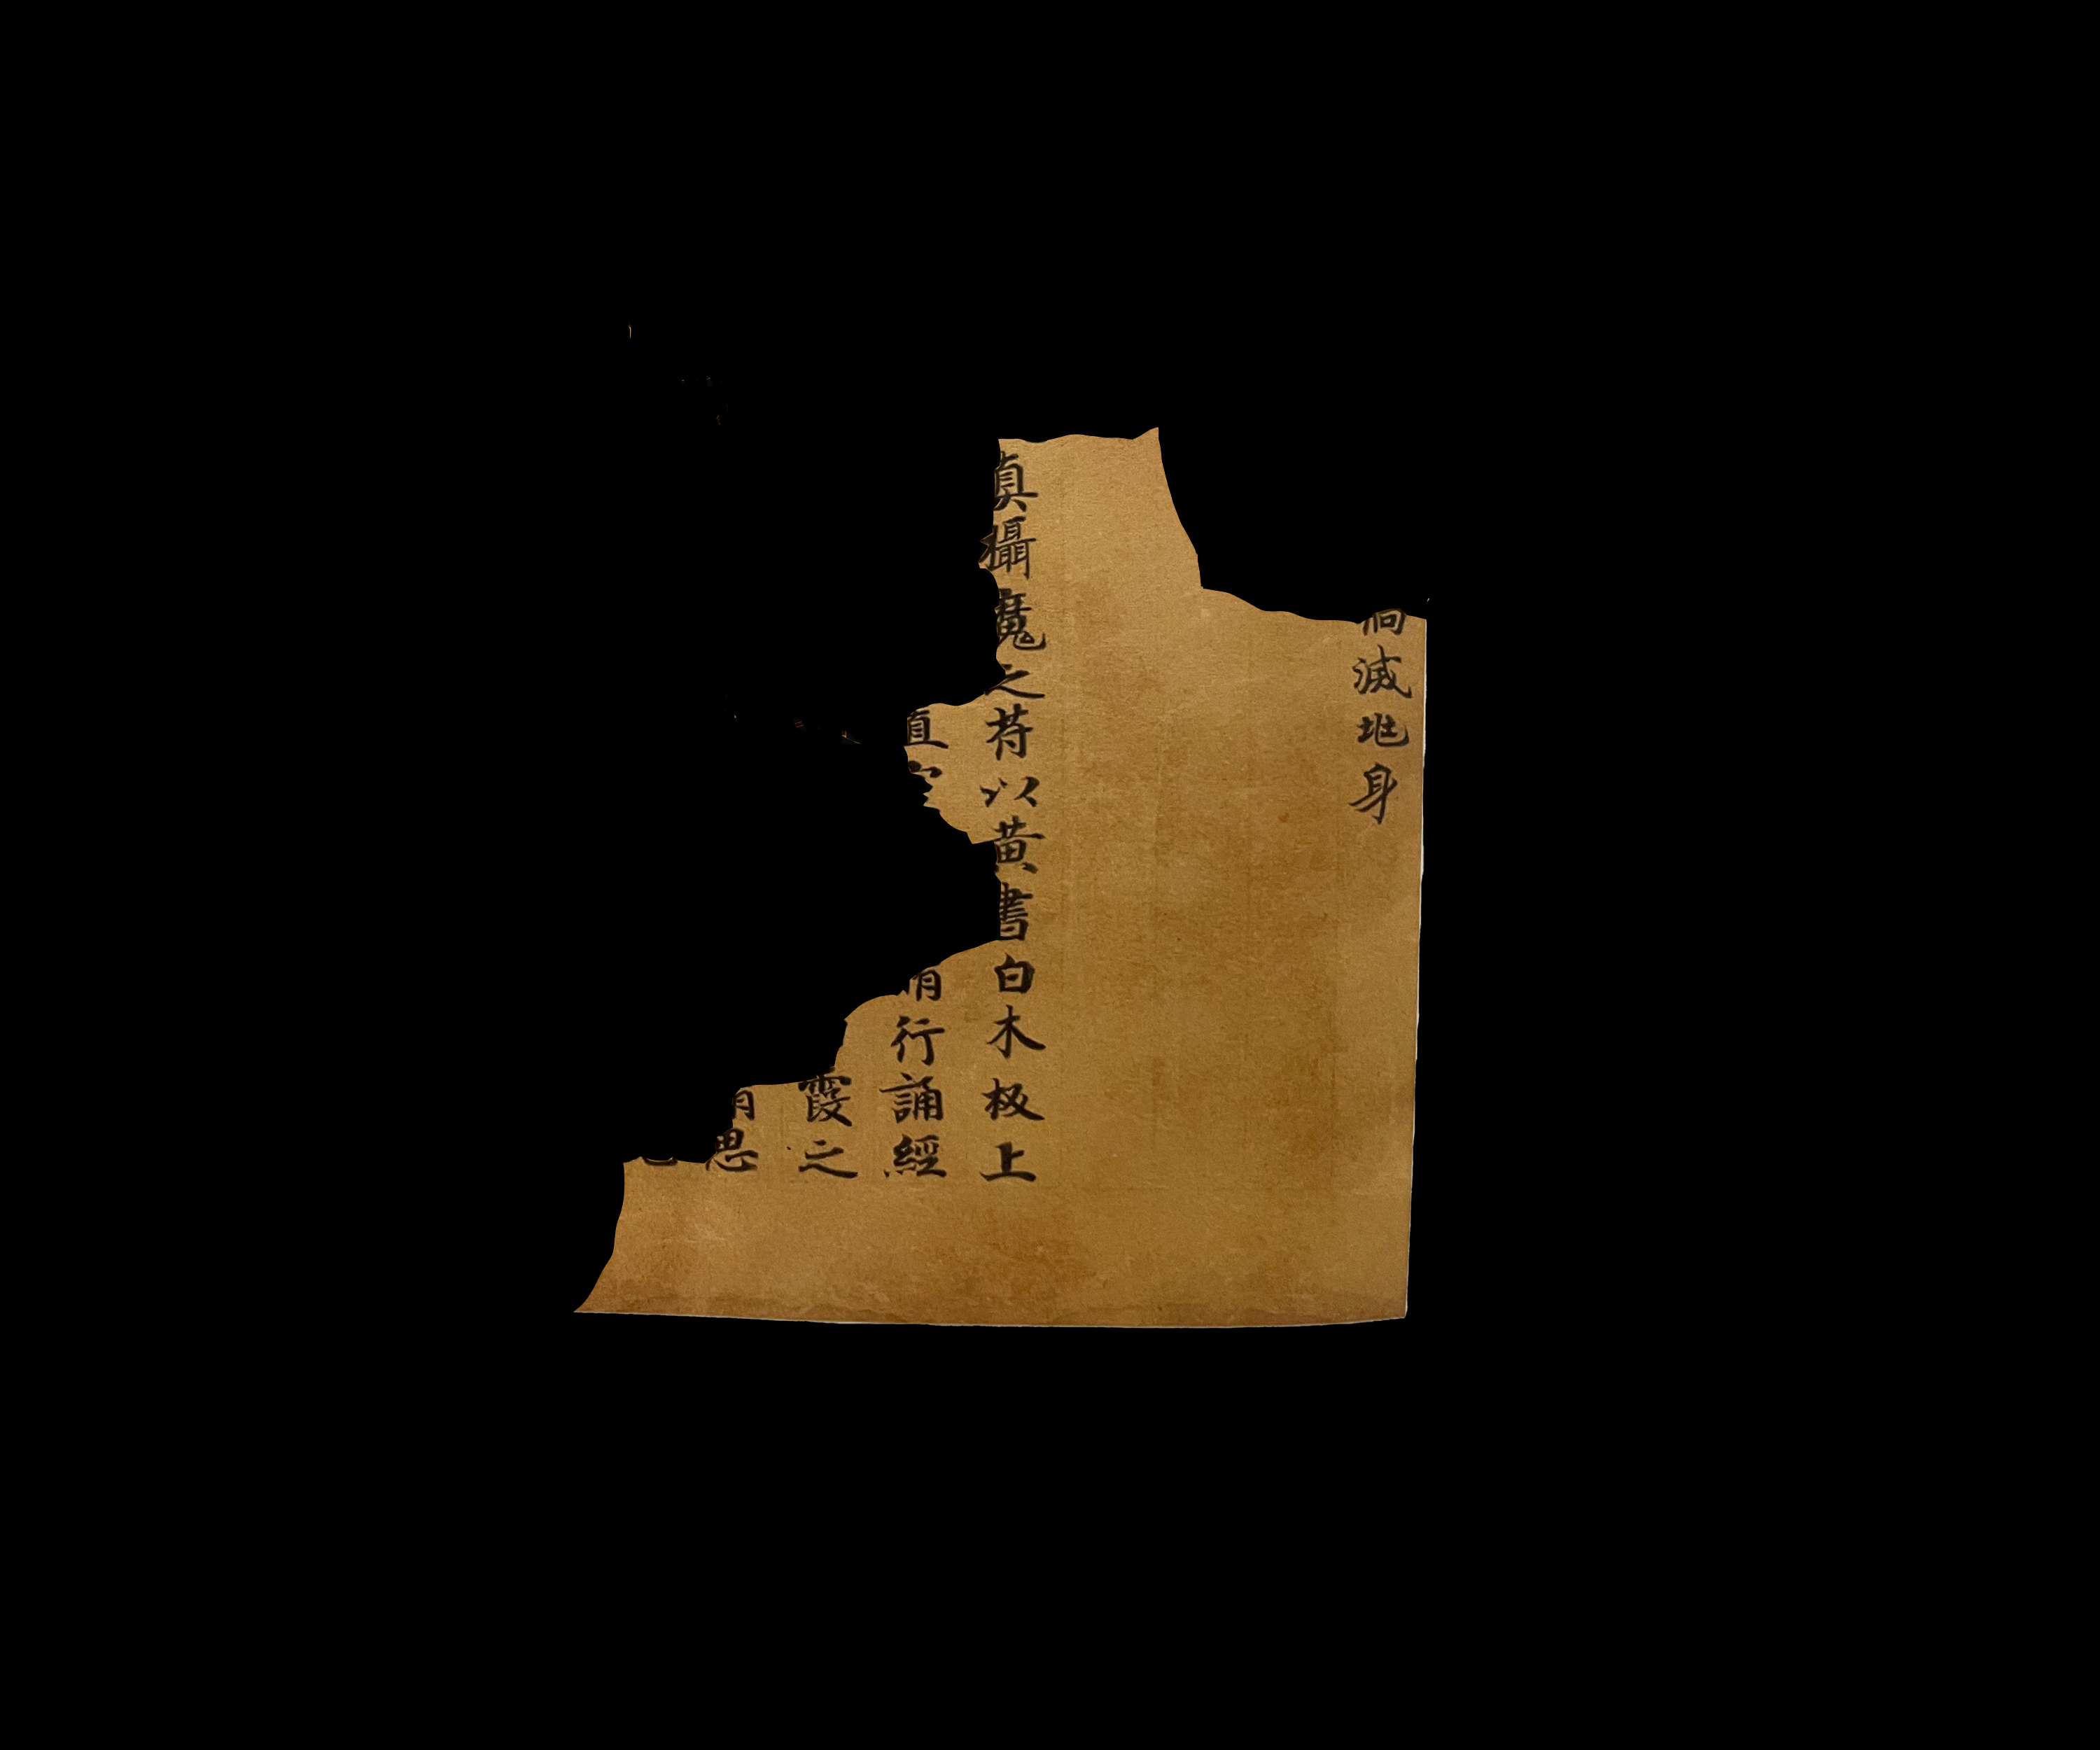 滅地身
真攝魔之苻以黄書白木板上
行誦經
霞之
思